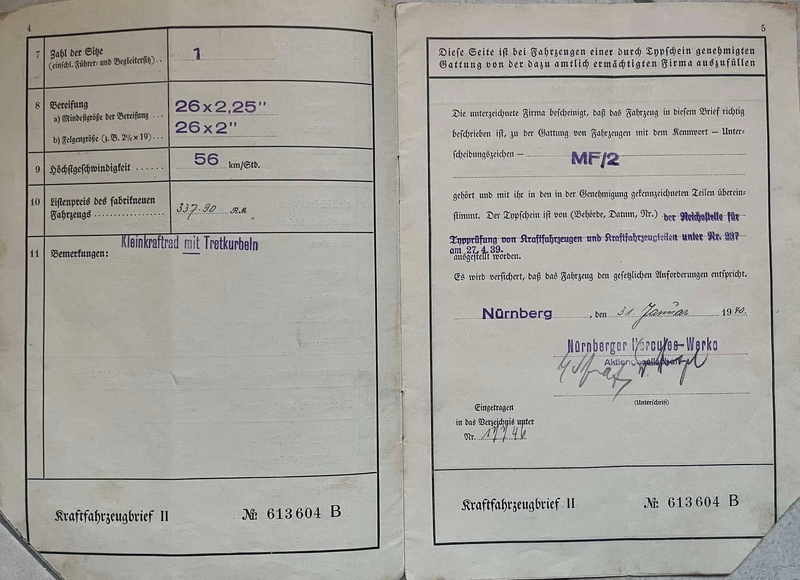 4
7 Zahl der Sitze
(einschl. Führer- und Begleitersitz) . . 1
8 Bereifung
a) Mindestgröße der Bereifung . . . 26x2,25"
b) Felgengröße (z. B. 2½ × 19) . . . 26x2"
9 Höchstgeschwindigkeit . . . . . . 56 km/Std.
10 Listenpreis des fabrikneuen
Fahrzeugs . . . . . . . . . . . . . . . 337.90 RM.
Kleinkraftrad mit Tretkurbeln
11 Bemerkungen:
Kraftfahrzeugbrief II № 613604 B
5
Diese Seite ist bei Fahrzeugen einer durch Typschein genehmigten
Gattung von der dazu amtlich ermächtigten Firma auszufüllen
Die unterzeichnete Firma bescheinigt, daß das Fahrzeug in diesem Brief richtig
beschrieben ist, zu der Gattung von Fahrzeugen mit dem Kennwort – Unter-
scheidungszeichen – MF/2
gehört und mit ihr in den in der Genehmigung gekennzeichneten Teilen überein-
stimmt. Der Typschein ist von (Behörde, Datum, Nr.) der Reichsstelle für
Typprüfung von Kraftfahrzeugen und Kraftfahrzeugteilen unter Nr. 237
am 27.4.39.
ausgestellt worden.
Es wird versichert, daß das Fahrzeug den gesetzlichen Anforderungen entspricht.
Nürnberg, den 31. Januar 1940.
Nürnberger Hercules-Werke
Aktiengesellschaft
(Unterschrift)
Eingetragen
in das Verzeichnis unter
Nr. 17746
Kraftfahrzeugbrief II № 613604 B